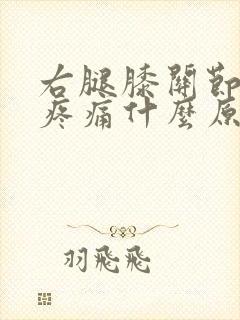 右腿膝關節
疼痛什麼原
羽飛飛